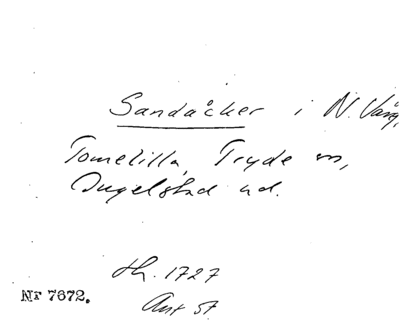 Sandåcker i N. Vång,
Tomelilla, Tryde sn,
Ingelstad hd.
th. 1727
Nr 7672.